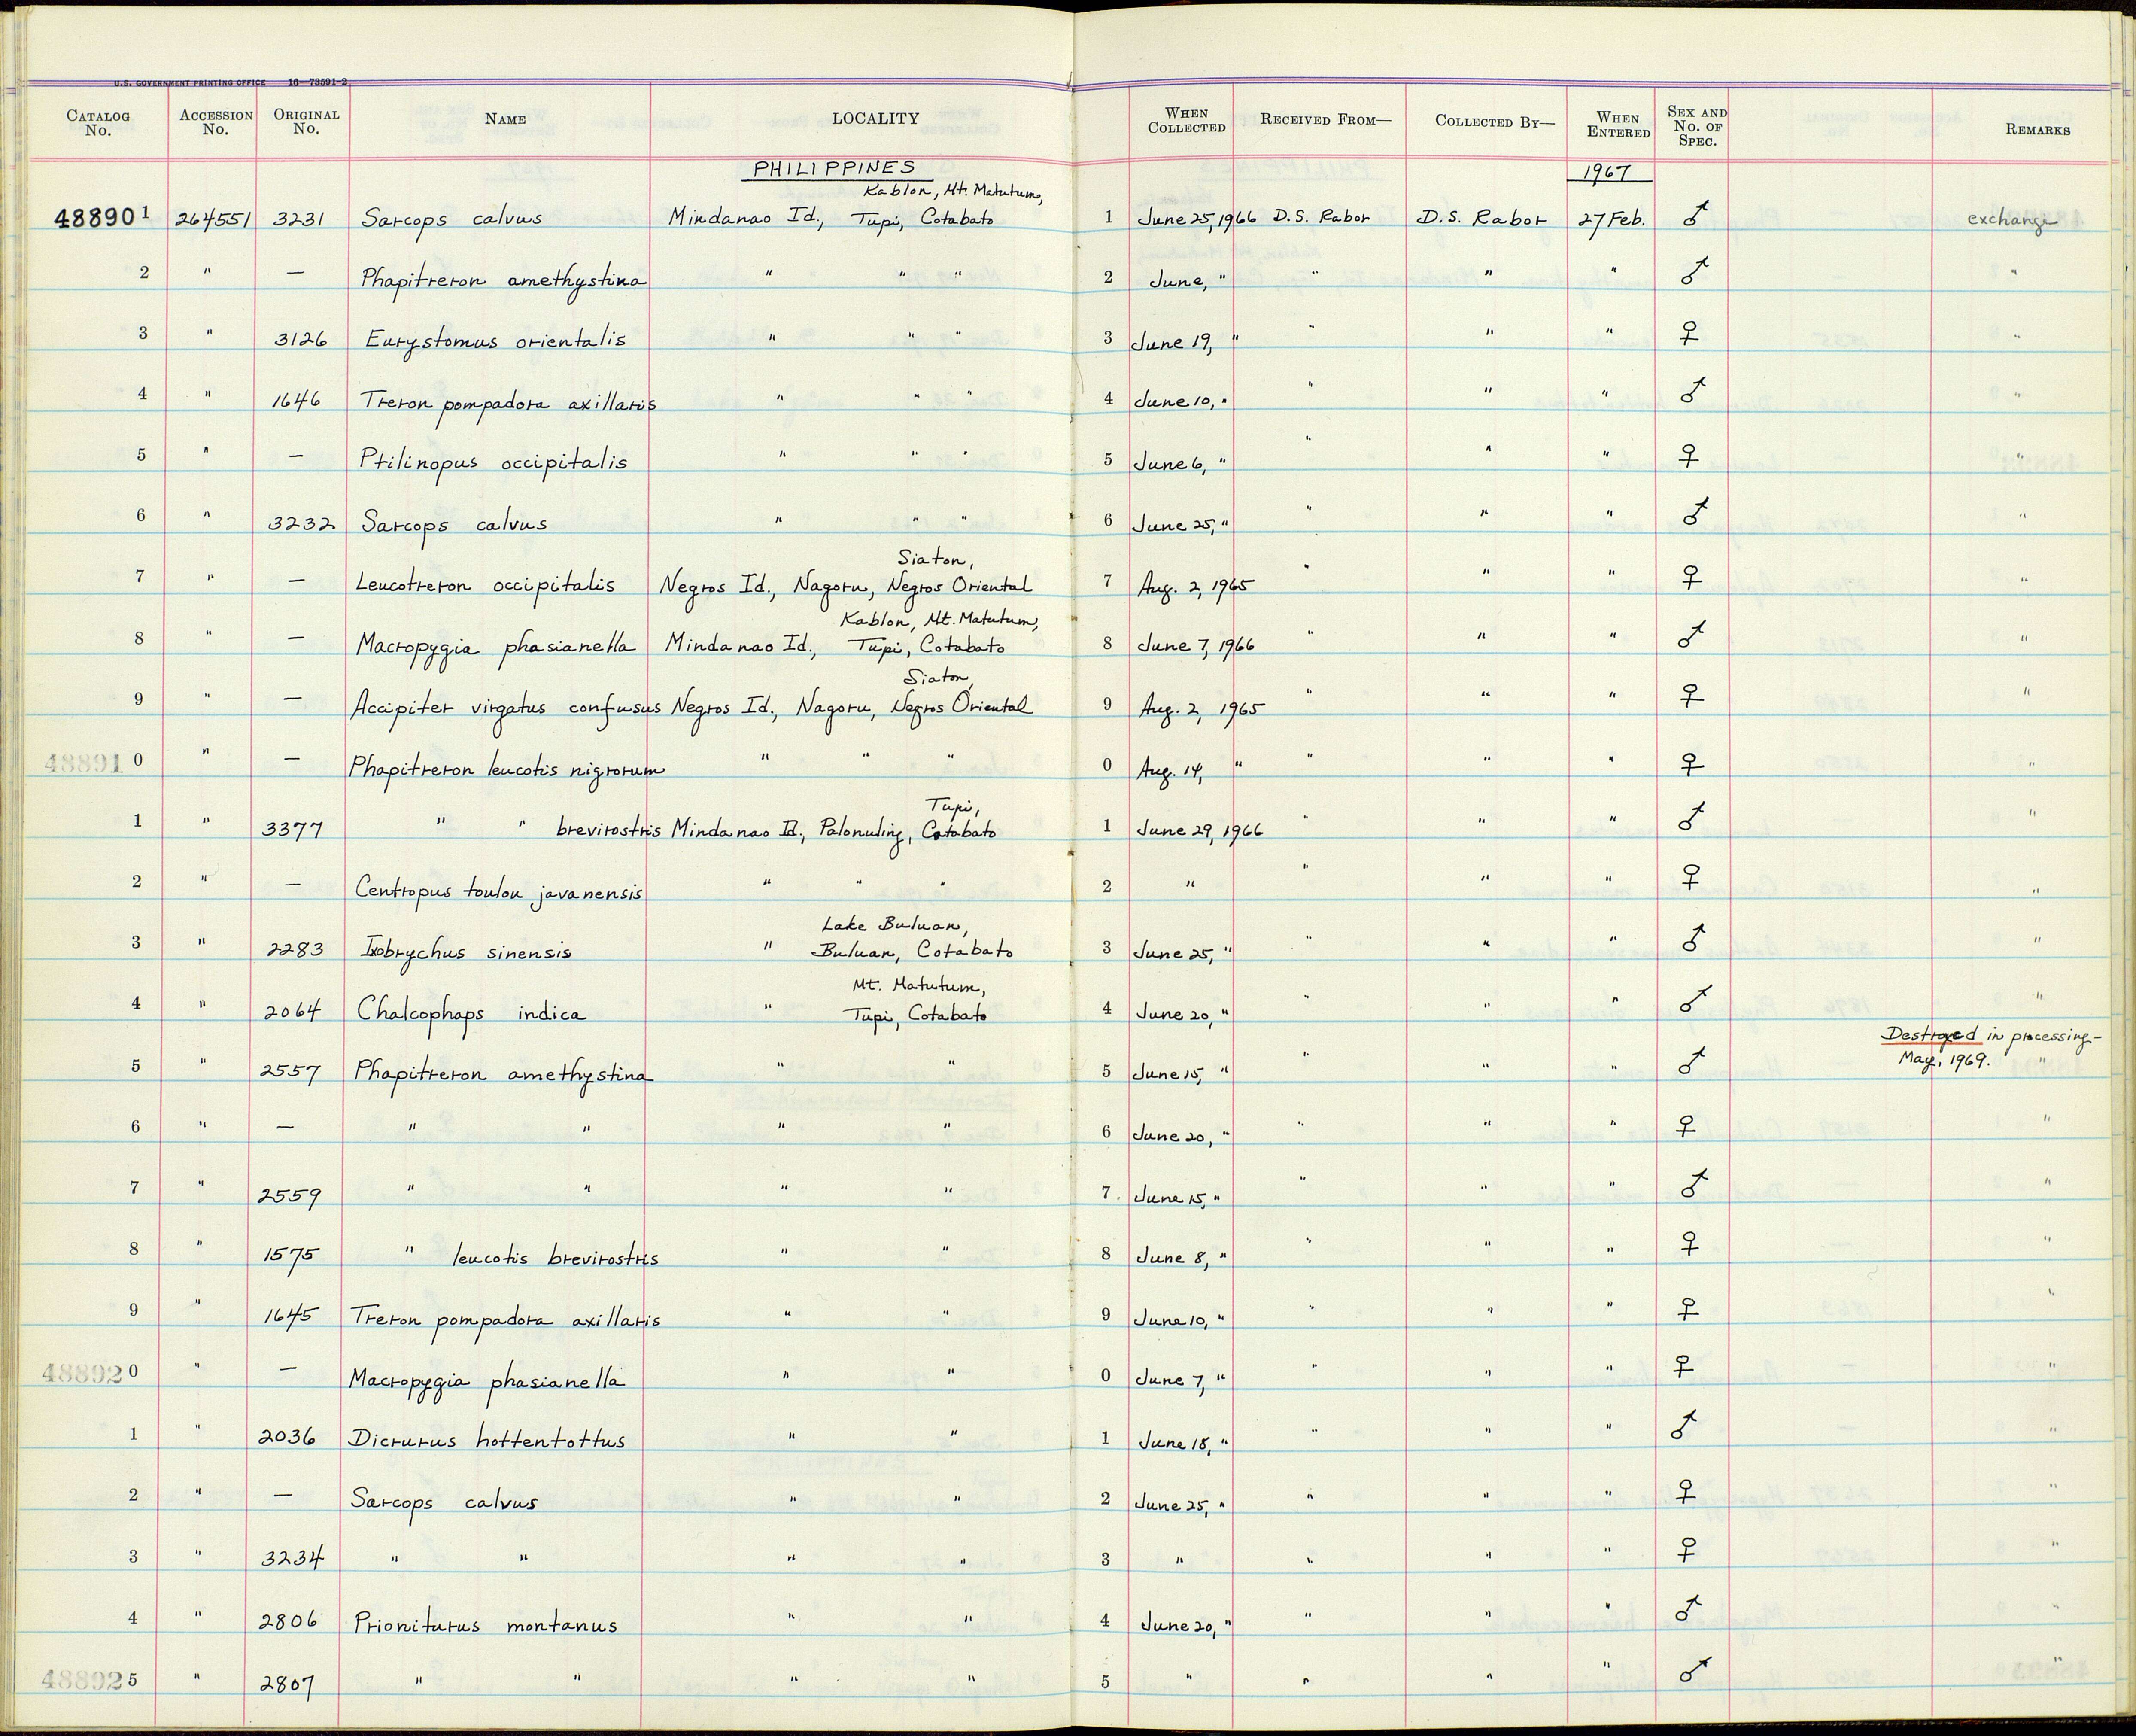 U.S. GOVERNMENT PRINTING OFFICE 16—73591-2
CATALOG No. ACCESSION No. ORIGINAL No. NAME LOCALITY WHEN COLLECTED RECEIVED FROM— COLLECTED BY— WHEN ENTERED SEX AND No. OF SPEC. REMARKS
PHILIPPINES 1967
Kablon, Mt. Matutum,
488901 264551 3231 Sarcops calvus Mindanao Id., Tupi, Cotabato 1 June 25, 1966 D.S. Rabor D.S. Rabor 27 Feb. ♂ exchange
2 " — Phapitreron amethystina " " " 2 June, " " " " ♂ "
3 " 3126 Eurystomus orientalis " " " 3 June 19, " " " " ♀ "
4 " 1646 Treron pompadora axillaris " " " 4 June 10, " " " " ♂ "
5 " — Ptilinopus occipitalis " " " 5 June 6, " " " " ♀ "
6 " 3232 Sarcops calvus " " " 6 June 25, " " " " ♂ "
Siaton,
7 " — Leucotreron occipitalis Negros Id., Nagoru, Negros Oriental 7 Aug. 2, 1965 " " " ♀ "
Kablon, Mt. Matutum,
8 " — Macropygia phasianella Mindanao Id., Tupi, Cotabato 8 June 7, 1966 " " " ♂ "
Siaton,
9 " — Accipiter virgatus confusus Negros Id., Nagoru, Negros Oriental 9 Aug. 2, 1965 " " " ♀ "
488910 " — Phapitreron leucotis nigrorum " " " 0 Aug. 14, " " " " ♀ "
Tupi,
1 " 3377 " " brevirostris Mindanao Id., Palonuling, Cotabato 1 June 29, 1966 " " " ♂ "
2 " — Centropus toulou javanensis " " " 2 " " " " ♀ "
Lake Buluan,
3 " 2283 Ixobrychus sinensis " Buluan, Cotabato 3 June 25, " " " " ♂ "
Mt. Matutum,
4 " 2064 Chalcophaps indica " Tupi, Cotabato 4 June 20, " " " " ♂ "
Destroyed in processing-
5 " 2557 Phapitreron amethystina " " 5 June 15, " " " " ♂ May, 1969. "
6 " — " " " " 6 June 20, " " " " ♀ "
7 " 2559 " " " " 7 June 15, " " " " ♂ "
8 " 1575 " leucotis brevirostris " " 8 June 8, " " " " ♀ "
9 " 1645 Treron pompadora axillaris " " 9 June 10, " " " " ♀ "
488920 " — Macropygia phasianella " " 0 June 7, " " " " ♀ "
1 " 2036 Dicrurus hottentottus " " 1 June 18, " " " " ♂ "
2 " — Sarcops calvus " " 2 June 25, " " " " ♀ "
3 " 3234 " " " " 3 " " " " ♀ "
4 " 2806 Prioniturus montanus " " 4 June 20, " " " " ♂ "
488925 " 2807 " " " " 5 " " " " ♂ "